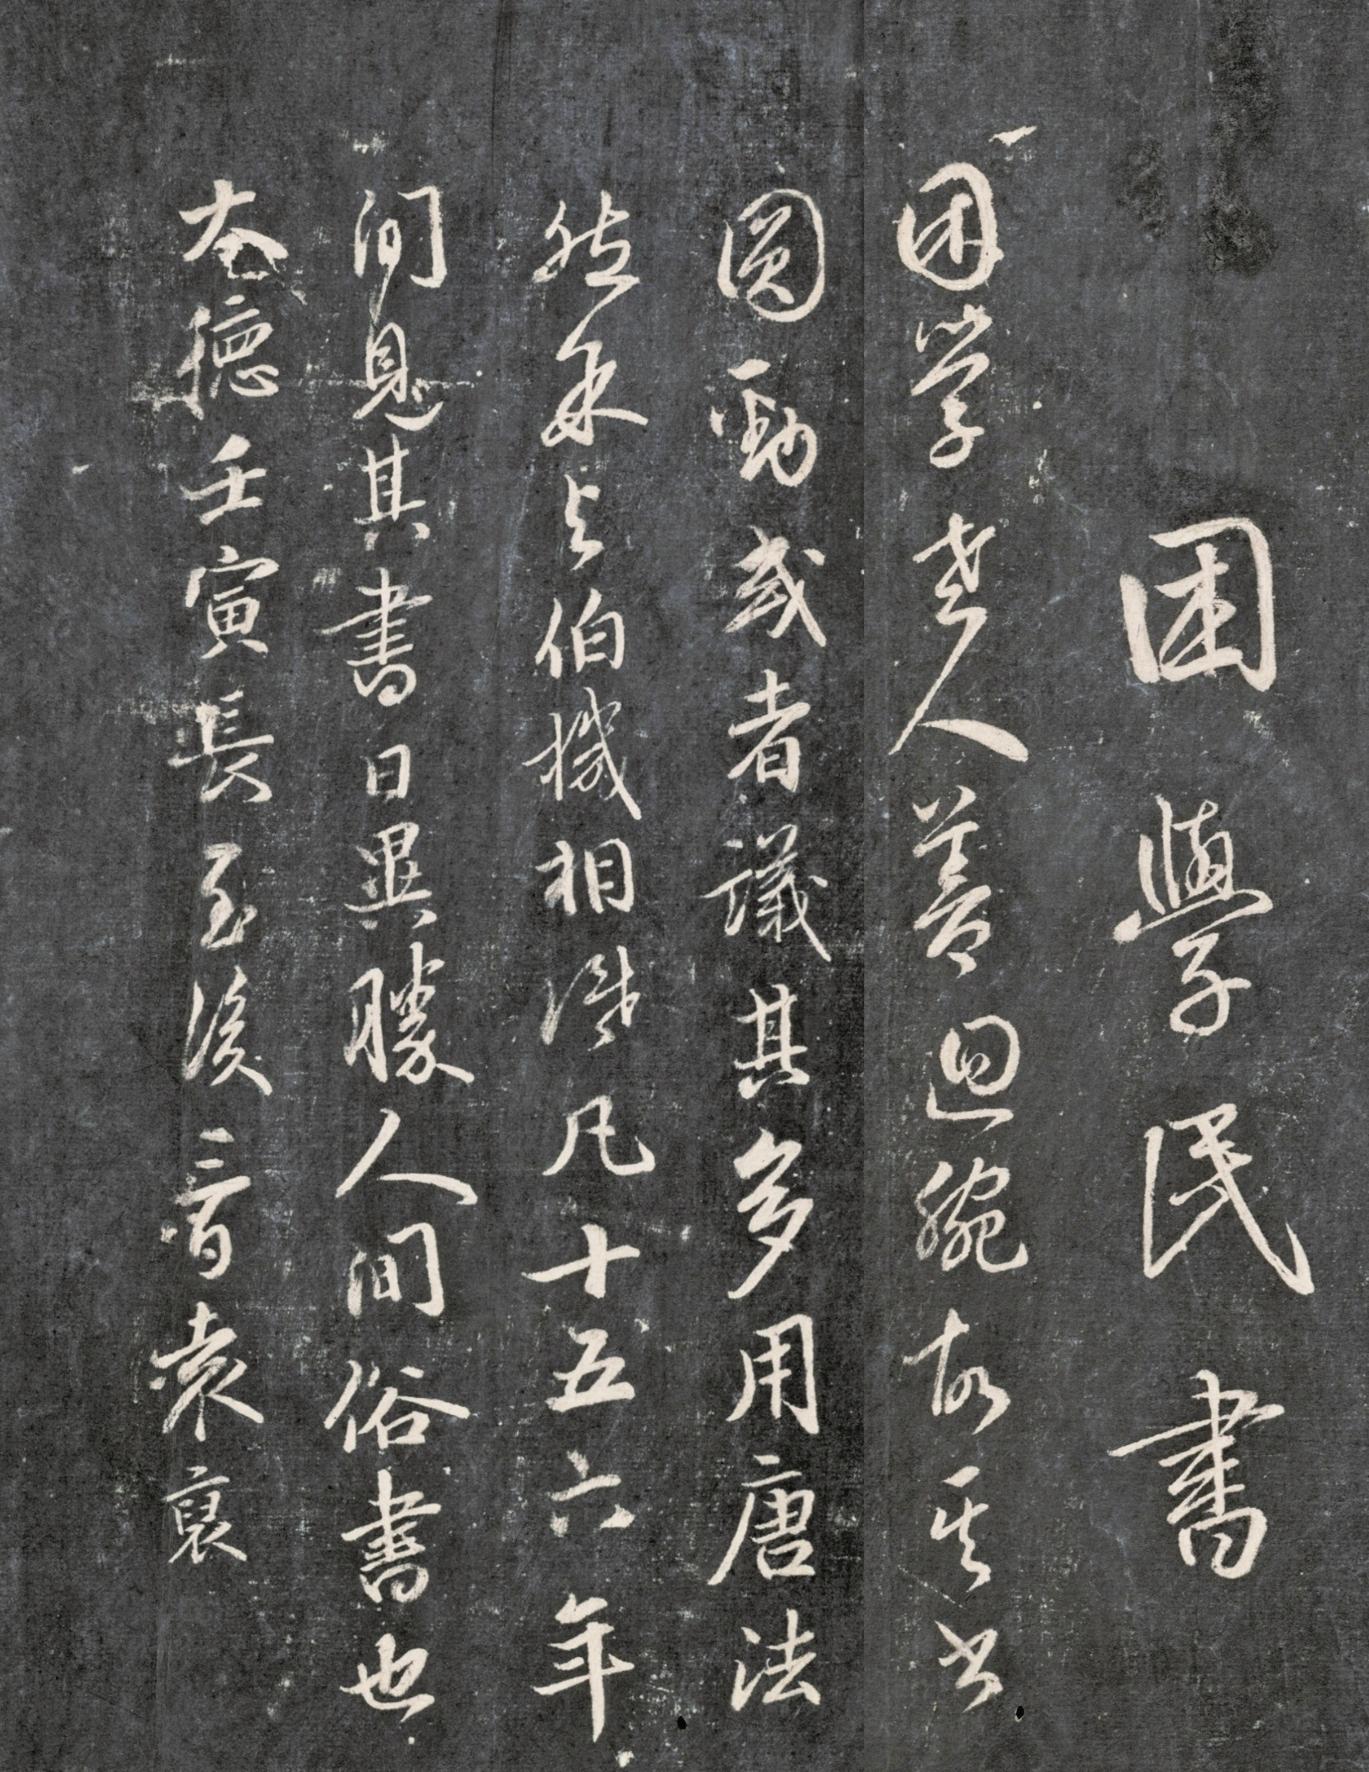 困學民書
困学老人善迴腕故其书
圓勁或者議其多用唐法
然余与伯機相識凡十五六年
间見其書日異勝人間俗書也
大德壬寅長至後袁裒